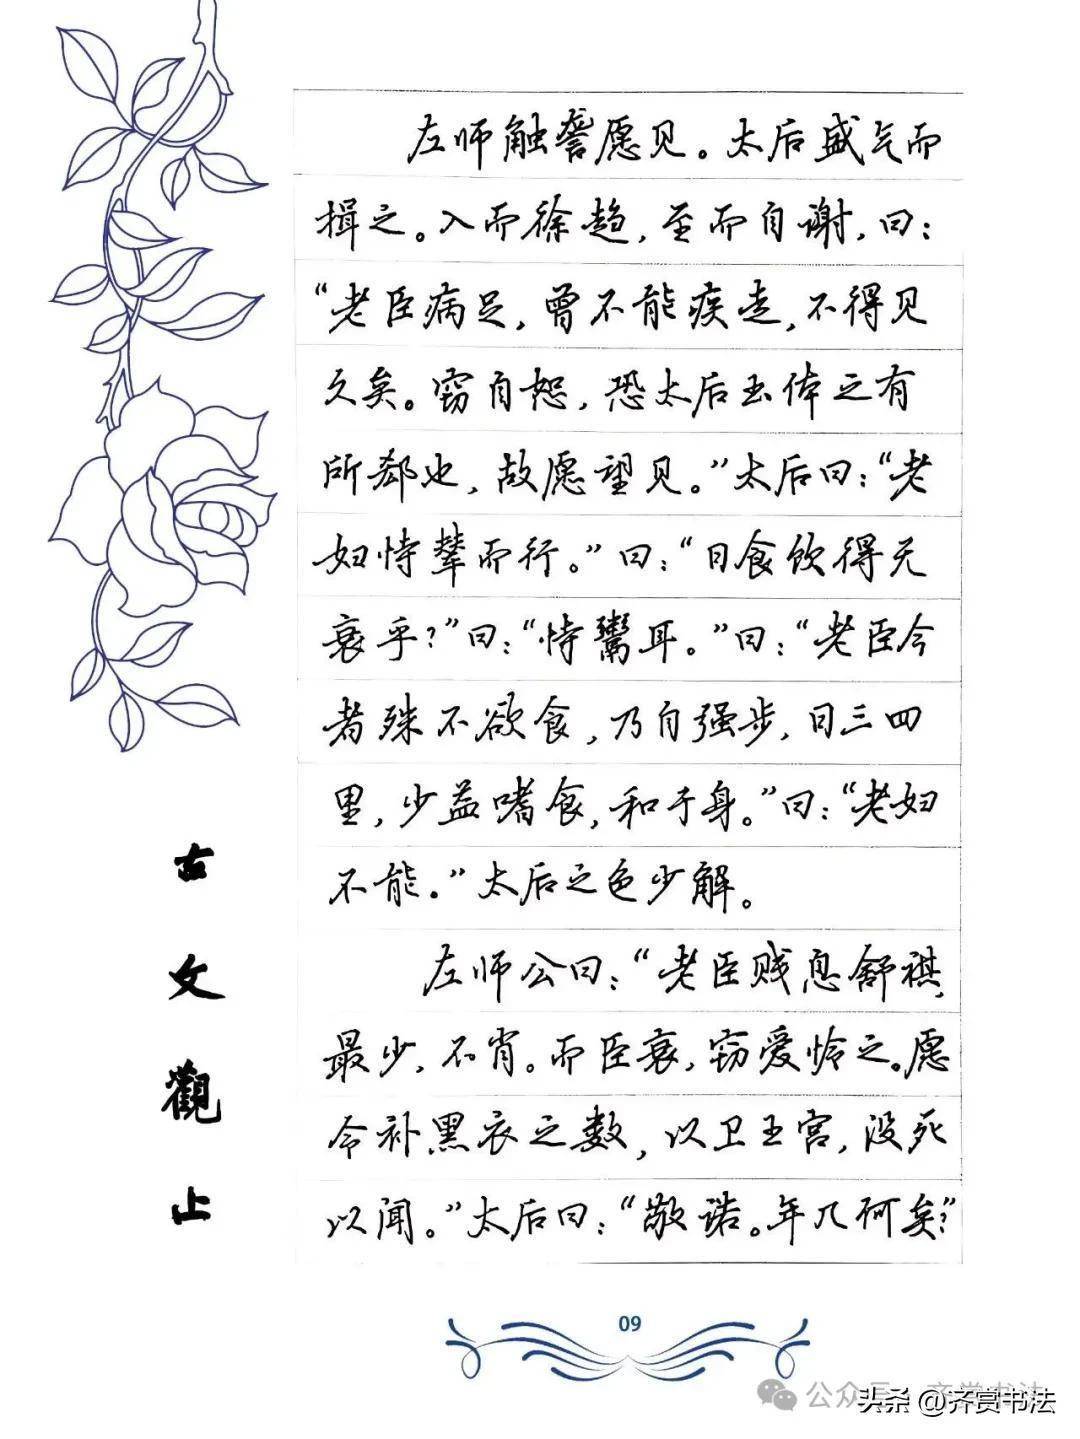 左师触詟愿见。太后盛气而
揖之。入而徐趋，至而自谢，曰：
“老臣病足，曾不能疾走，不得见
久矣。窃自恕，恐太后玉体之有
所郄也，故愿望见。”太后曰：“老
妇恃辇而行。”曰：“日食饮得无
衰乎？”曰：“恃鬻耳。”曰：“老臣今
者殊不欲食，乃自强步，日三四
里，少益嗜食，和于身。”曰：“老妇
不能。”太后之色少解。
左师公曰：“老臣贱息舒祺，
最少，不肖。而臣衰，窃爱怜之。愿
令补黑衣之数，以卫王宫，没死
以闻。”太后曰：“敬诺。年几何矣？”
古文觀止
09
公众号
头条 @齐赏书法